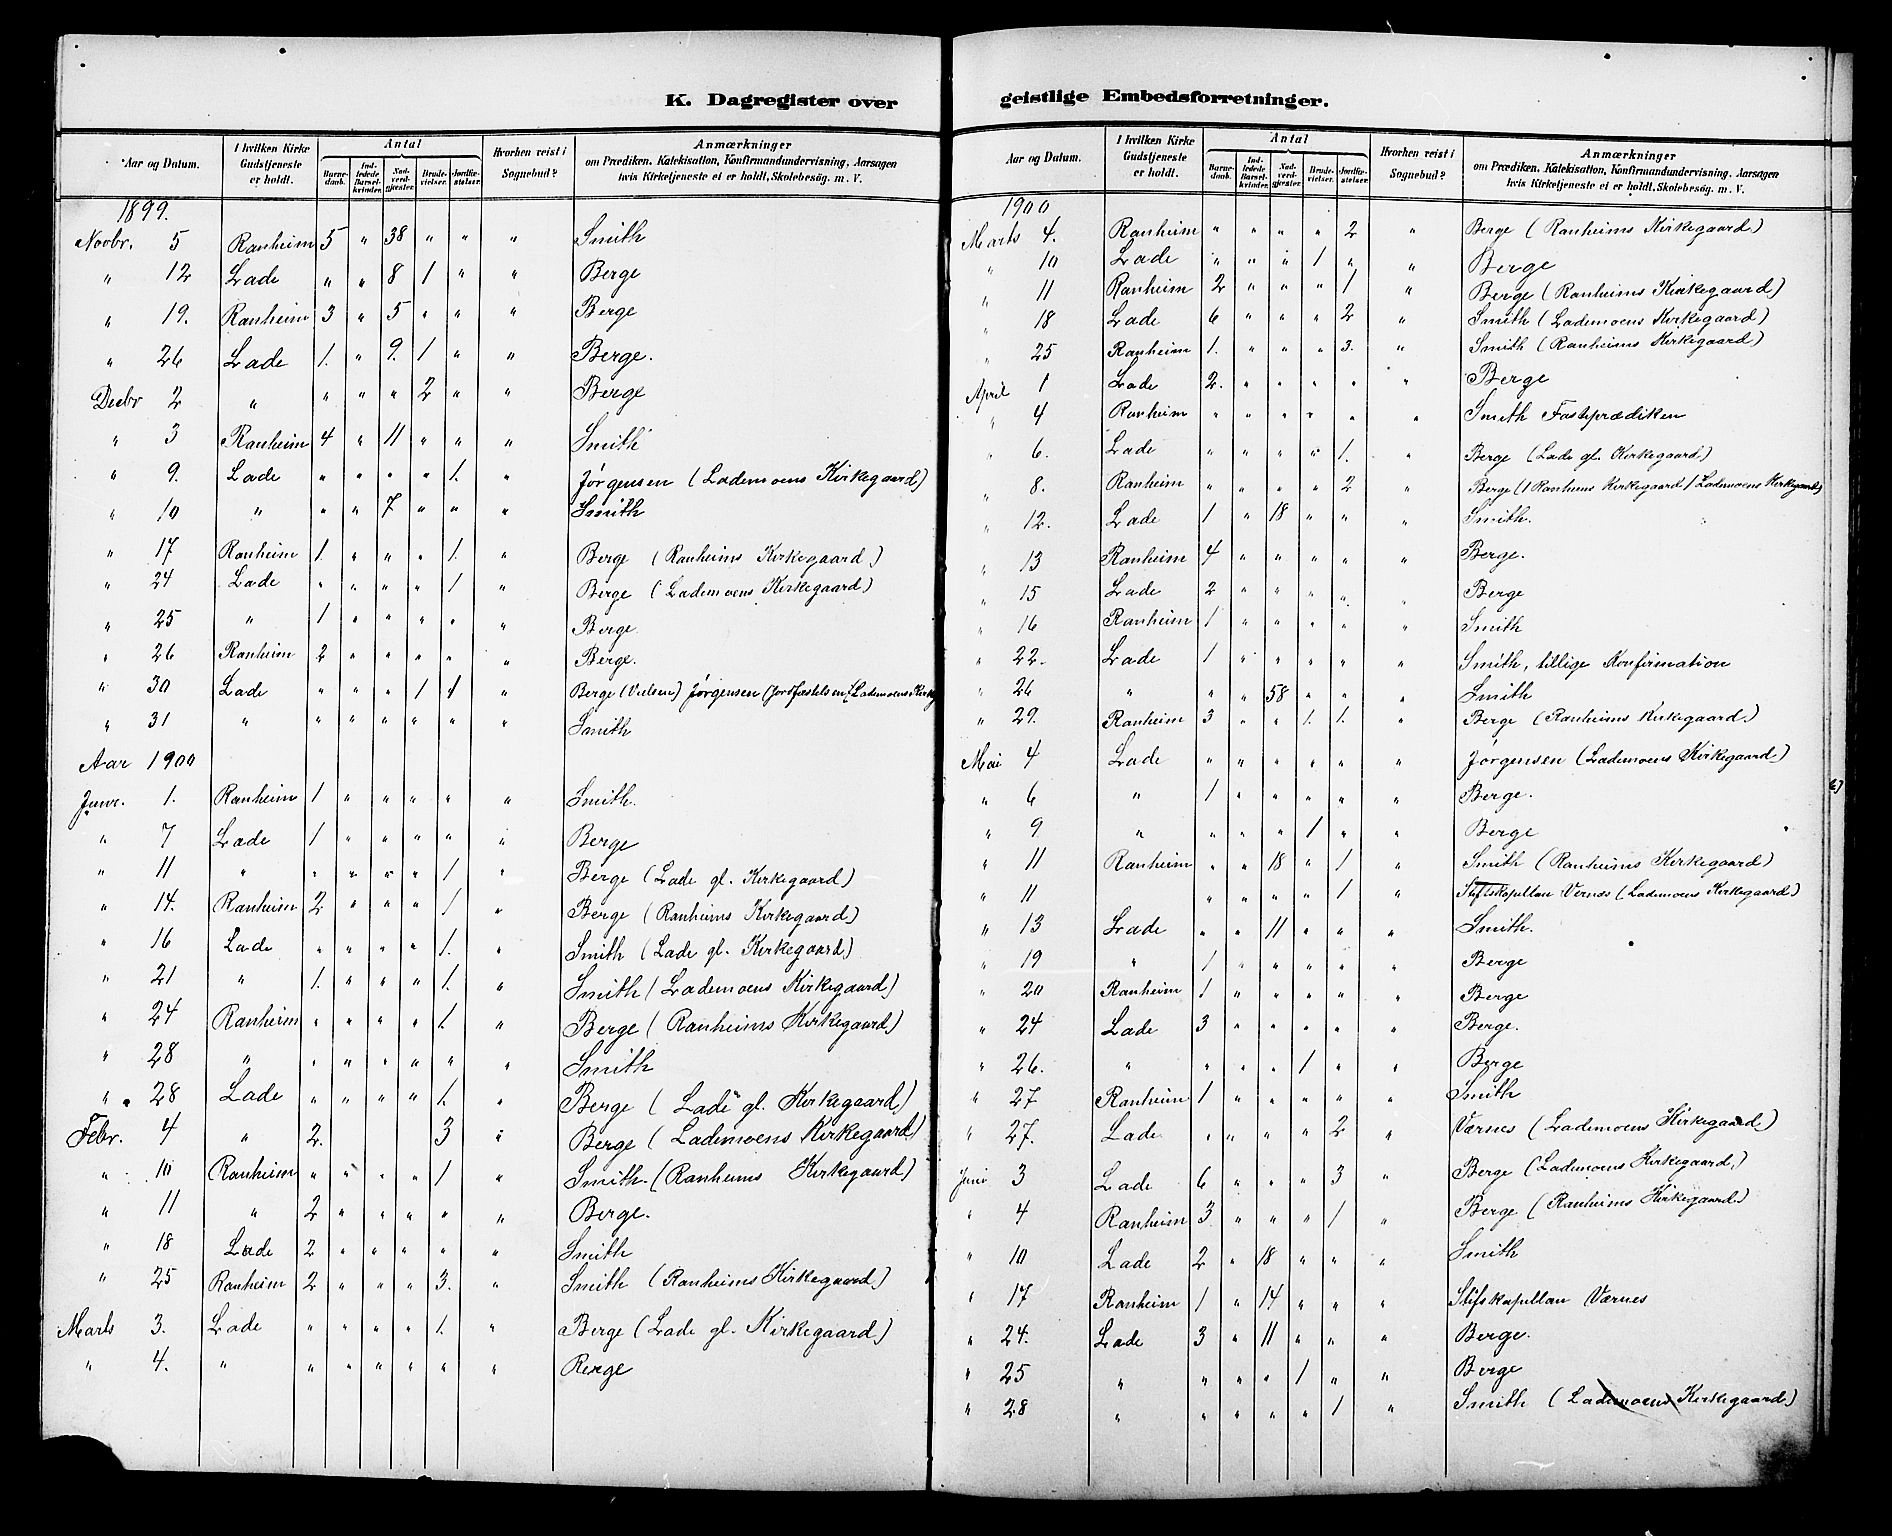 K. Dagregister over
Aar og Datum. | I hvilken Kirke Gudstjeneste er holdt. | Antal | Barne-daab. | Ind-ledede Barsel-kvinder. | Nad-verd-gjester. | Brude-vielser. | Jordfæ-stelser. | Hvorhen reist i Sognebud? | Anmærkninger om Prædiken, Katekisation, Konfirmandundervisning, Aarsagen hvis Kirketjeneste ei er holdt, Skolebesøg. m. V.
1899.
Novbr. 5 Ranheim 5 " 38 " " " Smith
" 12 Lade " " 8 1 " " Berge
" 19. Ranheim 3 " 5 " " " Berge
" 26 Lade 1. " 9. 1 " " Berge.
Decbr 2 " " " " 2 " " Berge
" 3 Ranheim 4 " 11 " " " Smith
" 9. Lade " " " " 1. " Jørgensen (Lademoens Kirkegaard)
" 10 " " " 7 " " " Smith
" 17 Ranheim 1. " " " 1. " Berge (Ranheims Kirkegaard)
" 24 Lade " " " " 1 " Berge (Lademoens Kirkegaard)
" 25 " 1 " " " " " Berge.
" 26 Ranheim 2 " " " " " Berge.
" 30 Lade " " " 1 1 " Berge (Vielsen) Jørgensen (Jordfæstelsen) (Lademoens Kirkeg
" 31 " " " " " " " Smith
Aar 1900
Janr. 1. Ranheim 1 " " " " " Smith.
" 7 Lade 1 " " " " " Berge
" 11 " " " " " 1 " Berge (Lade gl. Kirkegaard)
" 14. Ranheim 2 " " " 1 " Berge (Ranheims Kirkegaard)
" 16 Lade " " " " 1. " Smith (Lade gl. Kirkegaard)
" 21 " 1. " " " 1. " Smith (Lademoens Kirkegaard)
" 24 Ranheim " " " " 1. " Berge (Ranheims Kirkegaard)
" 28 " " " " " " " Smith
" 28 Lade " " " " 1. " Berge (Lade gl. Kirkegaard)
Febr. 4 " 2. 3 " Berge (Lademoens Kirkegaard)
" 10 Ranheim " " " " 1 " Smith. (Ranheims Kirkegaard)
" 11 " 2 " " " " " Berge.
" 18 Lade 2 " " " " " Smith
" 25 Ranheim 2 " " " 3. " Smith (Ranheims Kirkegaard)
Marts 3. Lade " " " " 1. " Berge (Lade gl. Kirkegaard)
" 4. " " " " " " " Berge
geistlige Embedsforretninger.
Aar og Datum. | I hvilken Kirke Gudstjeneste er holdt. | Antal | Barne-daab. | Ind-ledede Barsel-kvinder. | Nad-verd-gjester. | Brude-vielser. | Jordfæ-stelser. | Hvorhen reist i Sognebud? | Anmærkninger om Prædiken, Katekisation, Konfirmandundervisning, Aarsagen hvis Kirketjeneste ei er holdt, Skolebesøg. m. V.
1900
Marts 4. Ranheim " " " " 2 " Berge (Ranheims Kirkegaard)
" 10 Lade " " " 1 " " Berge
" 11 Ranheim 2 " " " 1 " Berge (Ranheims Kirkegaard)
" 18 Lade 6 " " " 2 " Smith (Lademoens Kirkegaard)
" 25 Ranheim 1. " " " 3. " Smith (Ranheims Kirkegaard)
April 1 Lade 2. " " " " " Berge
" 4 Ranheim " " " " " " Smith Fasteprædiken
" 6. Lade " " " " 1. " Berge (Lade gl. Kirkegaard)
" 8. Ranheim " " " " 2 " Berge (1 Ranheims Kirkegaard 1 Lademoens Kirkegaard)
" 12. Lade 1 " 18 " " " Smith.
" 13 Ranheim 4 " " " " " Berge.
" 15 Lade 2 " " " " " Berge
" 16 Ranheim 1 " " " " " Smith
" 22. Lade 1 " " " " " Smith, tillige Konfirmation
" 26 " " " 58 " " " Smith
" 29. Ranheim 3 " " 1. 1. " Berge (Ranheims Kirkegaard.)
Mai 4 Lade " " " " " " Jørgensen (Lademoens Kirkegaard)
" 6 " 1 " " " " " Berge.
" 9 " " " " 1 " " Berge
" 11 Ranheim " " 18 " 1 " Smith (Ranheims Kirkegaard)
" 11 " " " " 1 " Stiftskapellan Værnes (Lademoens Kirkegaard)
" 13 Lade " " 11 " " " Smith.
" 19 " 1 " " " " " Berge
" 20 Ranheim 1 " " " " " Berge
" 24 Lade 3 " " " " " Berge.
" 26. " " " " 1 " " Berge
" 27 Ranheim 1 " " " " " Smith
" 27. Lade " " " " 2 " Værnes (Lademoens Kirkegaard)
Juni 3 Lade 6 " " " 3 " Berge (Lademoens Kirkegaard.)
" 4 Ranheim 3. " " " 1 " Berge (Ranheims Kirkegaard)
" 10 Lade 2 " 18 " " " Smith
" 17 Ranheim 1 " 14 " " " Stifskapellan Værnes
" 24. Lade 3 " 11 " " " Berge.
" 25 " " " " 1 " " Berge
" 28 " " " " " 1 " Smith (Lademoens Kirkegaard)